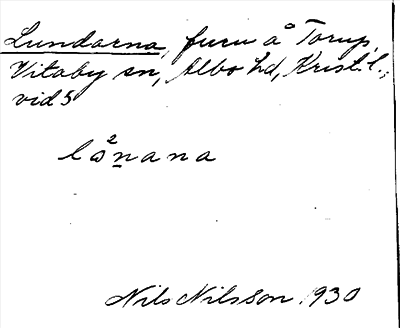 Lundarna, furu å Torup,
Vitaby sn, Albo hd, Krist. l.,
vid 5
lånana
Nils Nilsson 1930